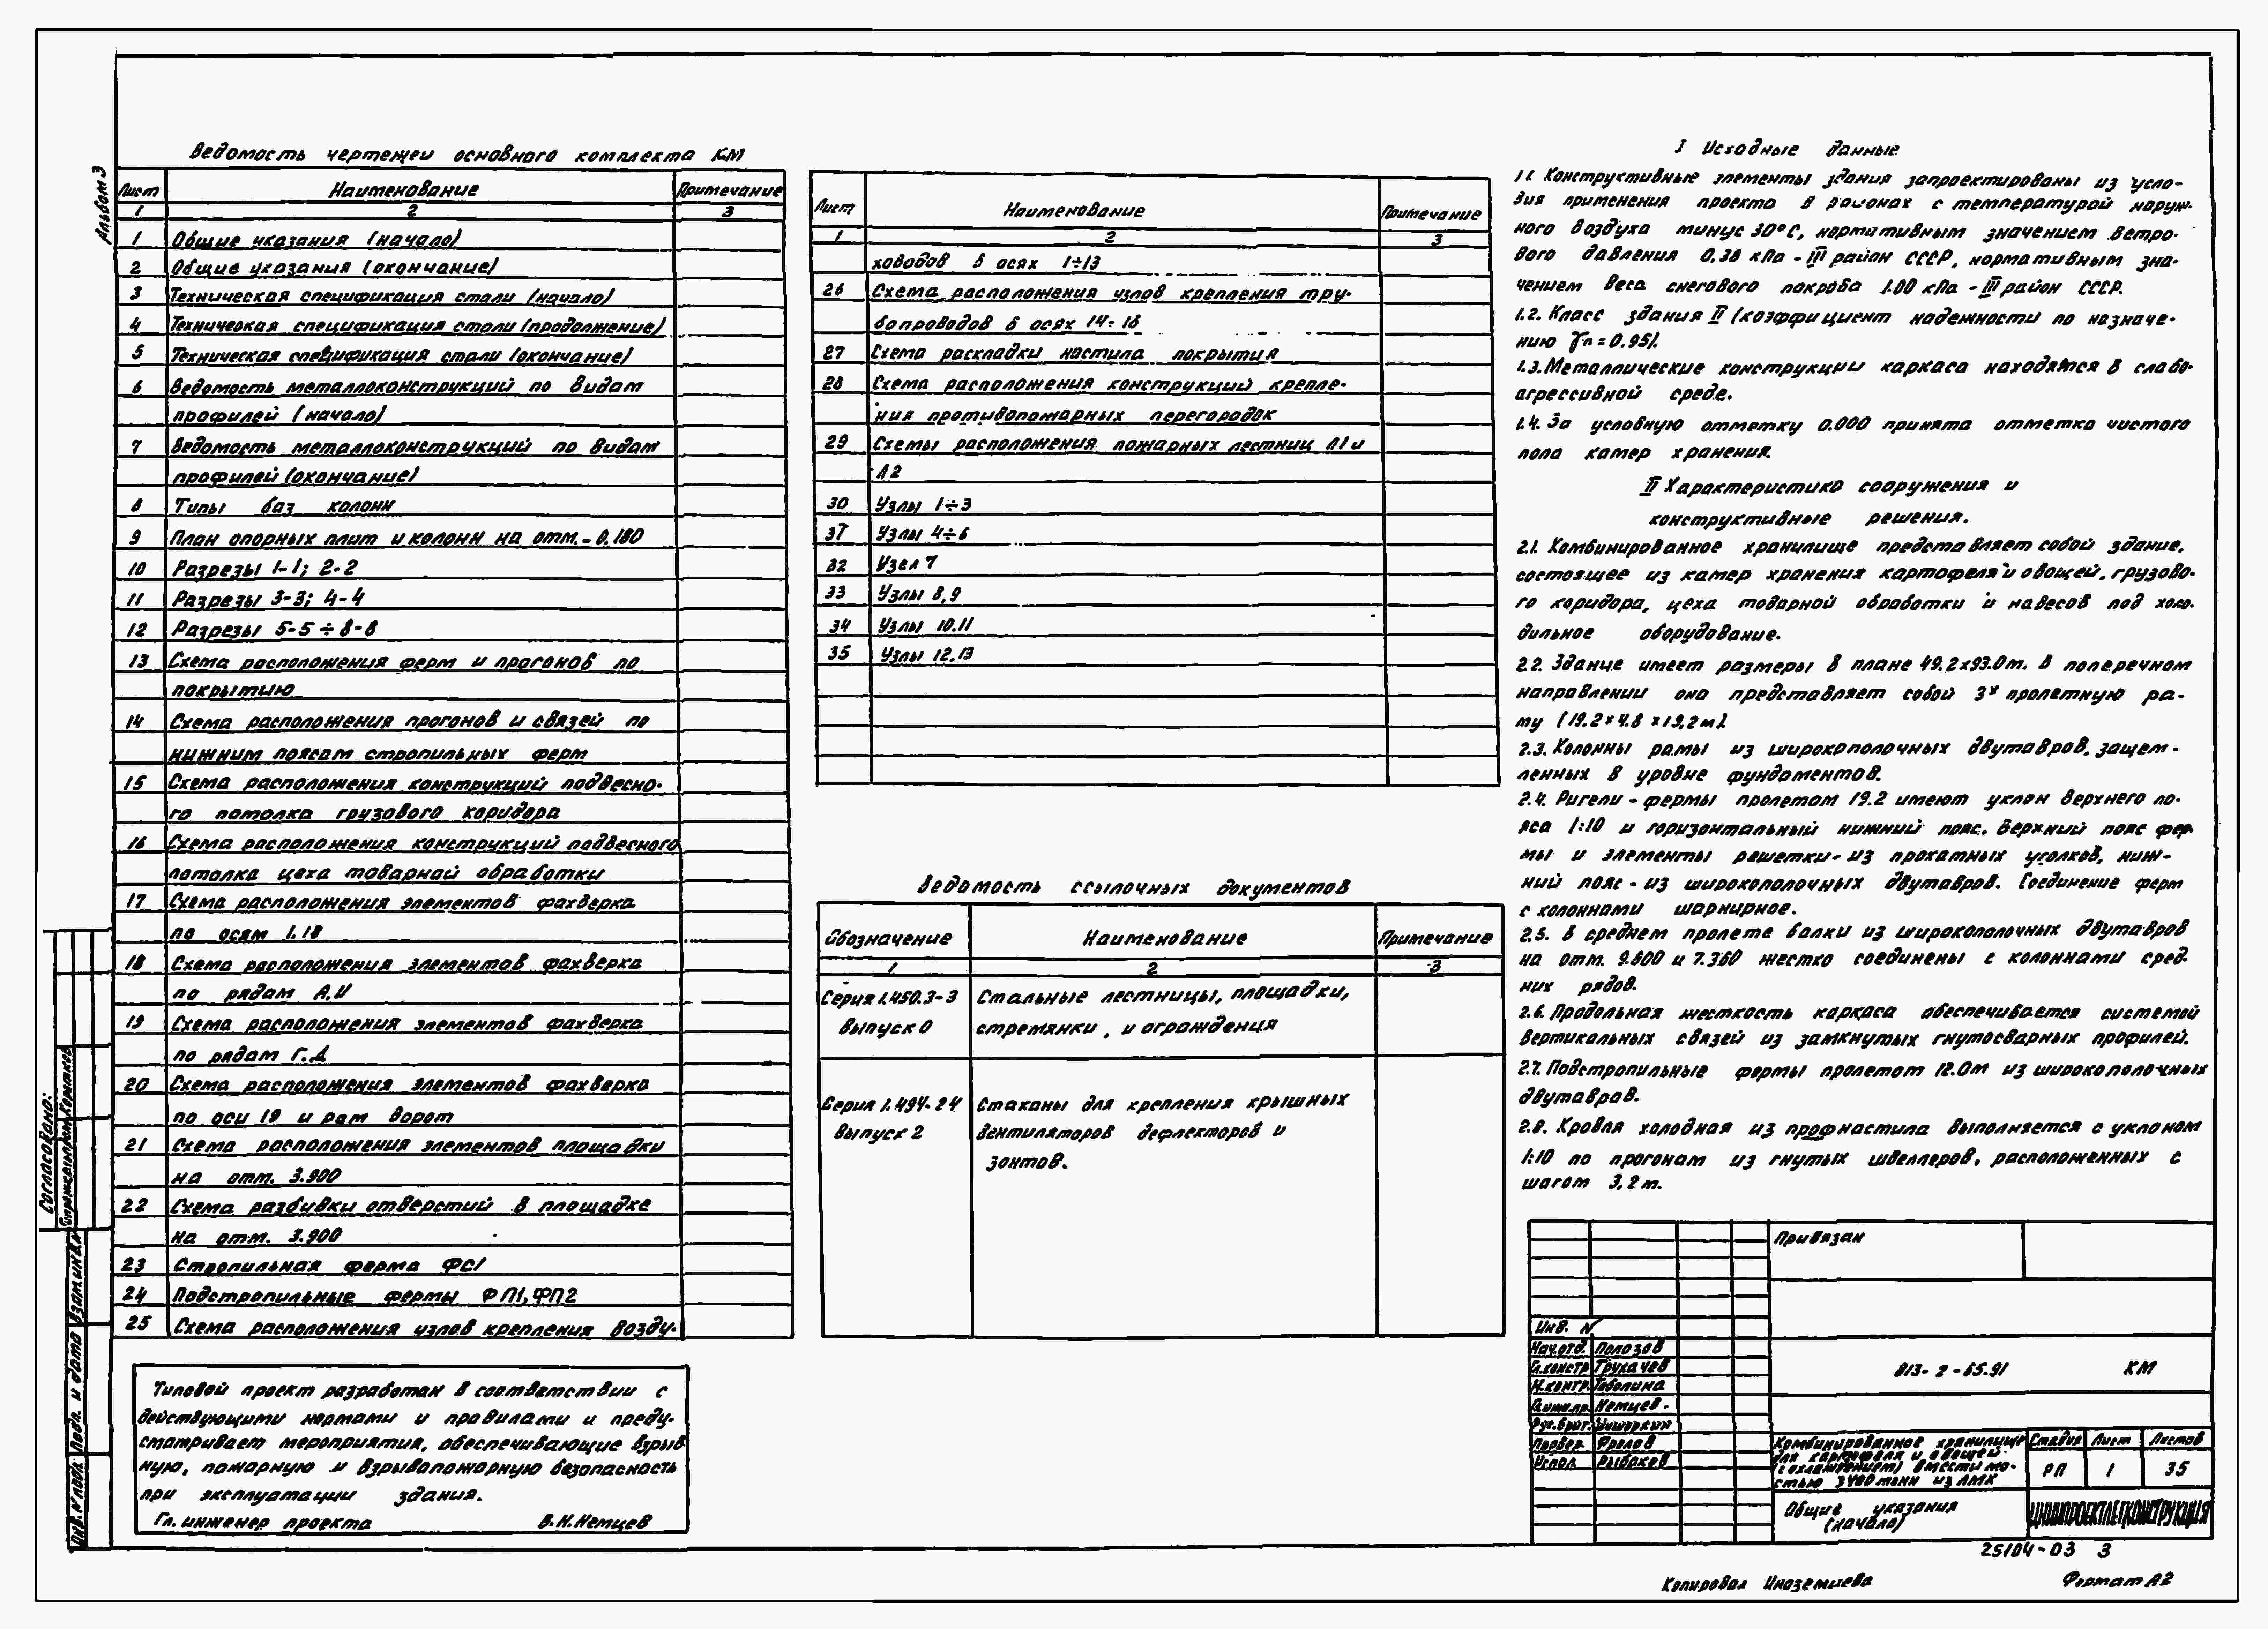 Альбом 3
Ведомость чертежей основного комплекта КМ
Лист Наименование Примечание
1 2 3
1 Общие указания (начало)
2 Общие указания (окончание)
3 Техническая спецификация стали (начало)
4 Техническая спецификация стали (продолжение)
5 Техническая спецификация стали (окончание)
6 Ведомость металлоконструкций по видам
профилей (начало)
7 Ведомость металлоконструкций по видам
профилей (окончание)
8 Типы баз колонн
9 План опорных плит и колонн на отм. -0.180
10 Разрезы 1-1; 2-2
11 Разрезы 3-3; 4-4
12 Разрезы 5-5 ÷ 8-8
13 Схема расположения ферм и прогонов по
покрытию
14 Схема расположения прогонов и связей по
нижним поясам стропильных ферм
15 Схема расположения конструкций подвесно-
го потолка грузового коридора
16 Схема расположения конструкций подвесного
потолка цеха товарной обработки
17 Схема расположения элементов фахверка
по осям 1.18
18 Схема расположения элементов фахверка
по рядам А,И
19 Схема расположения элементов фахверка
по рядам Г.Д
20 Схема расположения элементов фахверка
по оси 19 и рам ворот
21 Схема расположения элементов площадки
на отм. 3.900
22 Схема разбивки отверстий в площадке
на отм. 3.900
23 Стропильная ферма ФС1
24 Подстропильные фермы ФП1, ФП2
25 Схема расположения узлов крепления возду-
Типовой проект разработан в соответствии с
действующими нормами и правилами и преду-
сматривает мероприятия, обеспечивающие взрыв
ную, пожарную и взрывопожарную безопасность
при эксплуатации здания.
Гл. инженер проекта В.Н.Немцев
Лист Наименование Примечание
1 2 3
ховодов в осях 1÷13
26 Схема расположения узлов крепления тру-
бопроводов в осях 14÷18
27 Схема раскладки настила покрытия
28 Схема расположения конструкций крепле-
ния противопожарных перегородок
29 Схемы расположения пожарных лестниц Л1 и
Л2
30 Узлы 1÷3
31 Узлы 4÷6
32 Узел 7
33 Узлы 8,9
34 Узлы 10.11
35 Узлы 12.13
Ведомость ссылочных документов
Обозначение Наименование Примечание
1 2 3
Серия 1.450.3-3 Стальные лестницы, площадки,
выпуск 0 стремянки, и ограждения
Серия 1.494-24 Стаканы для крепления крышных
выпуск 2 вентиляторов дефлекторов и
зонтов.
I Исходные данные
1.1. Конструктивные элементы здания запроектированы из усло-
вия применения проекта в районах с температурой наруж-
ного воздуха минус 30°С, нормативным значением ветро-
вого давления 0,38 кПа - III район СССР, нормативным зна-
чением веса снегового покрова 1.00 кПа - III район СССР.
1.2. Класс здания II (коэффициент надежности по назначе-
нию γn = 0.95).
1.3. Металлические конструкции каркаса находятся в слабо-
агрессивной среде.
1.4. За условную отметку 0.000 принята отметка чистого
пола камер хранения.
II Характеристика сооружения и
конструктивные решения.
2.1. Комбинированное хранилище представляет собой здание,
состоящее из камер хранения картофеля и овощей, грузово-
го коридора, цеха товарной обработки и навесов под холо-
дильное оборудование.
2.2. Здание имеет размеры в плане 49.2х93.0м. В поперечном
направлении она представляет собой 3х пролетную ра-
му (19.2 × 4.8 × 19,2 м).
2.3. Колонны рамы из широкополочных двутавров, защем-
ленных в уровне фундаментов.
2.4. Ригели - фермы пролетом 19.2 имеют уклон верхнего по-
яса 1:10 и горизонтальный нижний пояс. Верхний пояс фер-
мы и элементы решетки- из прокатных уголков, ниж-
ний пояс - из широкополочных двутавров. Соединение ферм
с колоннами шарнирное.
2.5. В среднем пролете балки из широкополочных двутавров
на отм. 9.600 и 7.360 жестко соединены с колоннами сред-
них рядов.
2.6. Продольная жесткость каркаса обеспечивается системой
вертикальных связей из замкнутых гнутосварных профилей.
2.7. Подстропильные фермы пролетом 12.0м из широкополочных
двутавров.
2.8. Кровля холодная из профнастила выполняется с уклоном
1:10 по прогонам из гнутых швеллеров, расположенных с
шагом 3,2 м.
Привязан
Инв. N
Нач.отд. Полозов
Гл.констр Трукачев
Н.контр. Таболина
Гл.инж.пр. Немцев
Рук.бриг. Шишаркин
Провер. Фролов
Испол. Рыбаков
813-2-65.91 КМ
Комбинированное хранилище
для картофеля и овощей
(с охлаждением) вместимо-
стью 3400 тонн из ЛМК
Стадия Лист Листов
РП 1 35
Общие указания
(начало)
ЦНИИПРОЕКТЛЕГКОНСТРУКЦИЯ
25104-03 3
Копировал Иноземцева Формат А2
Согласовано:
Инв.N подл. Подп. и дата Взам.инв.N